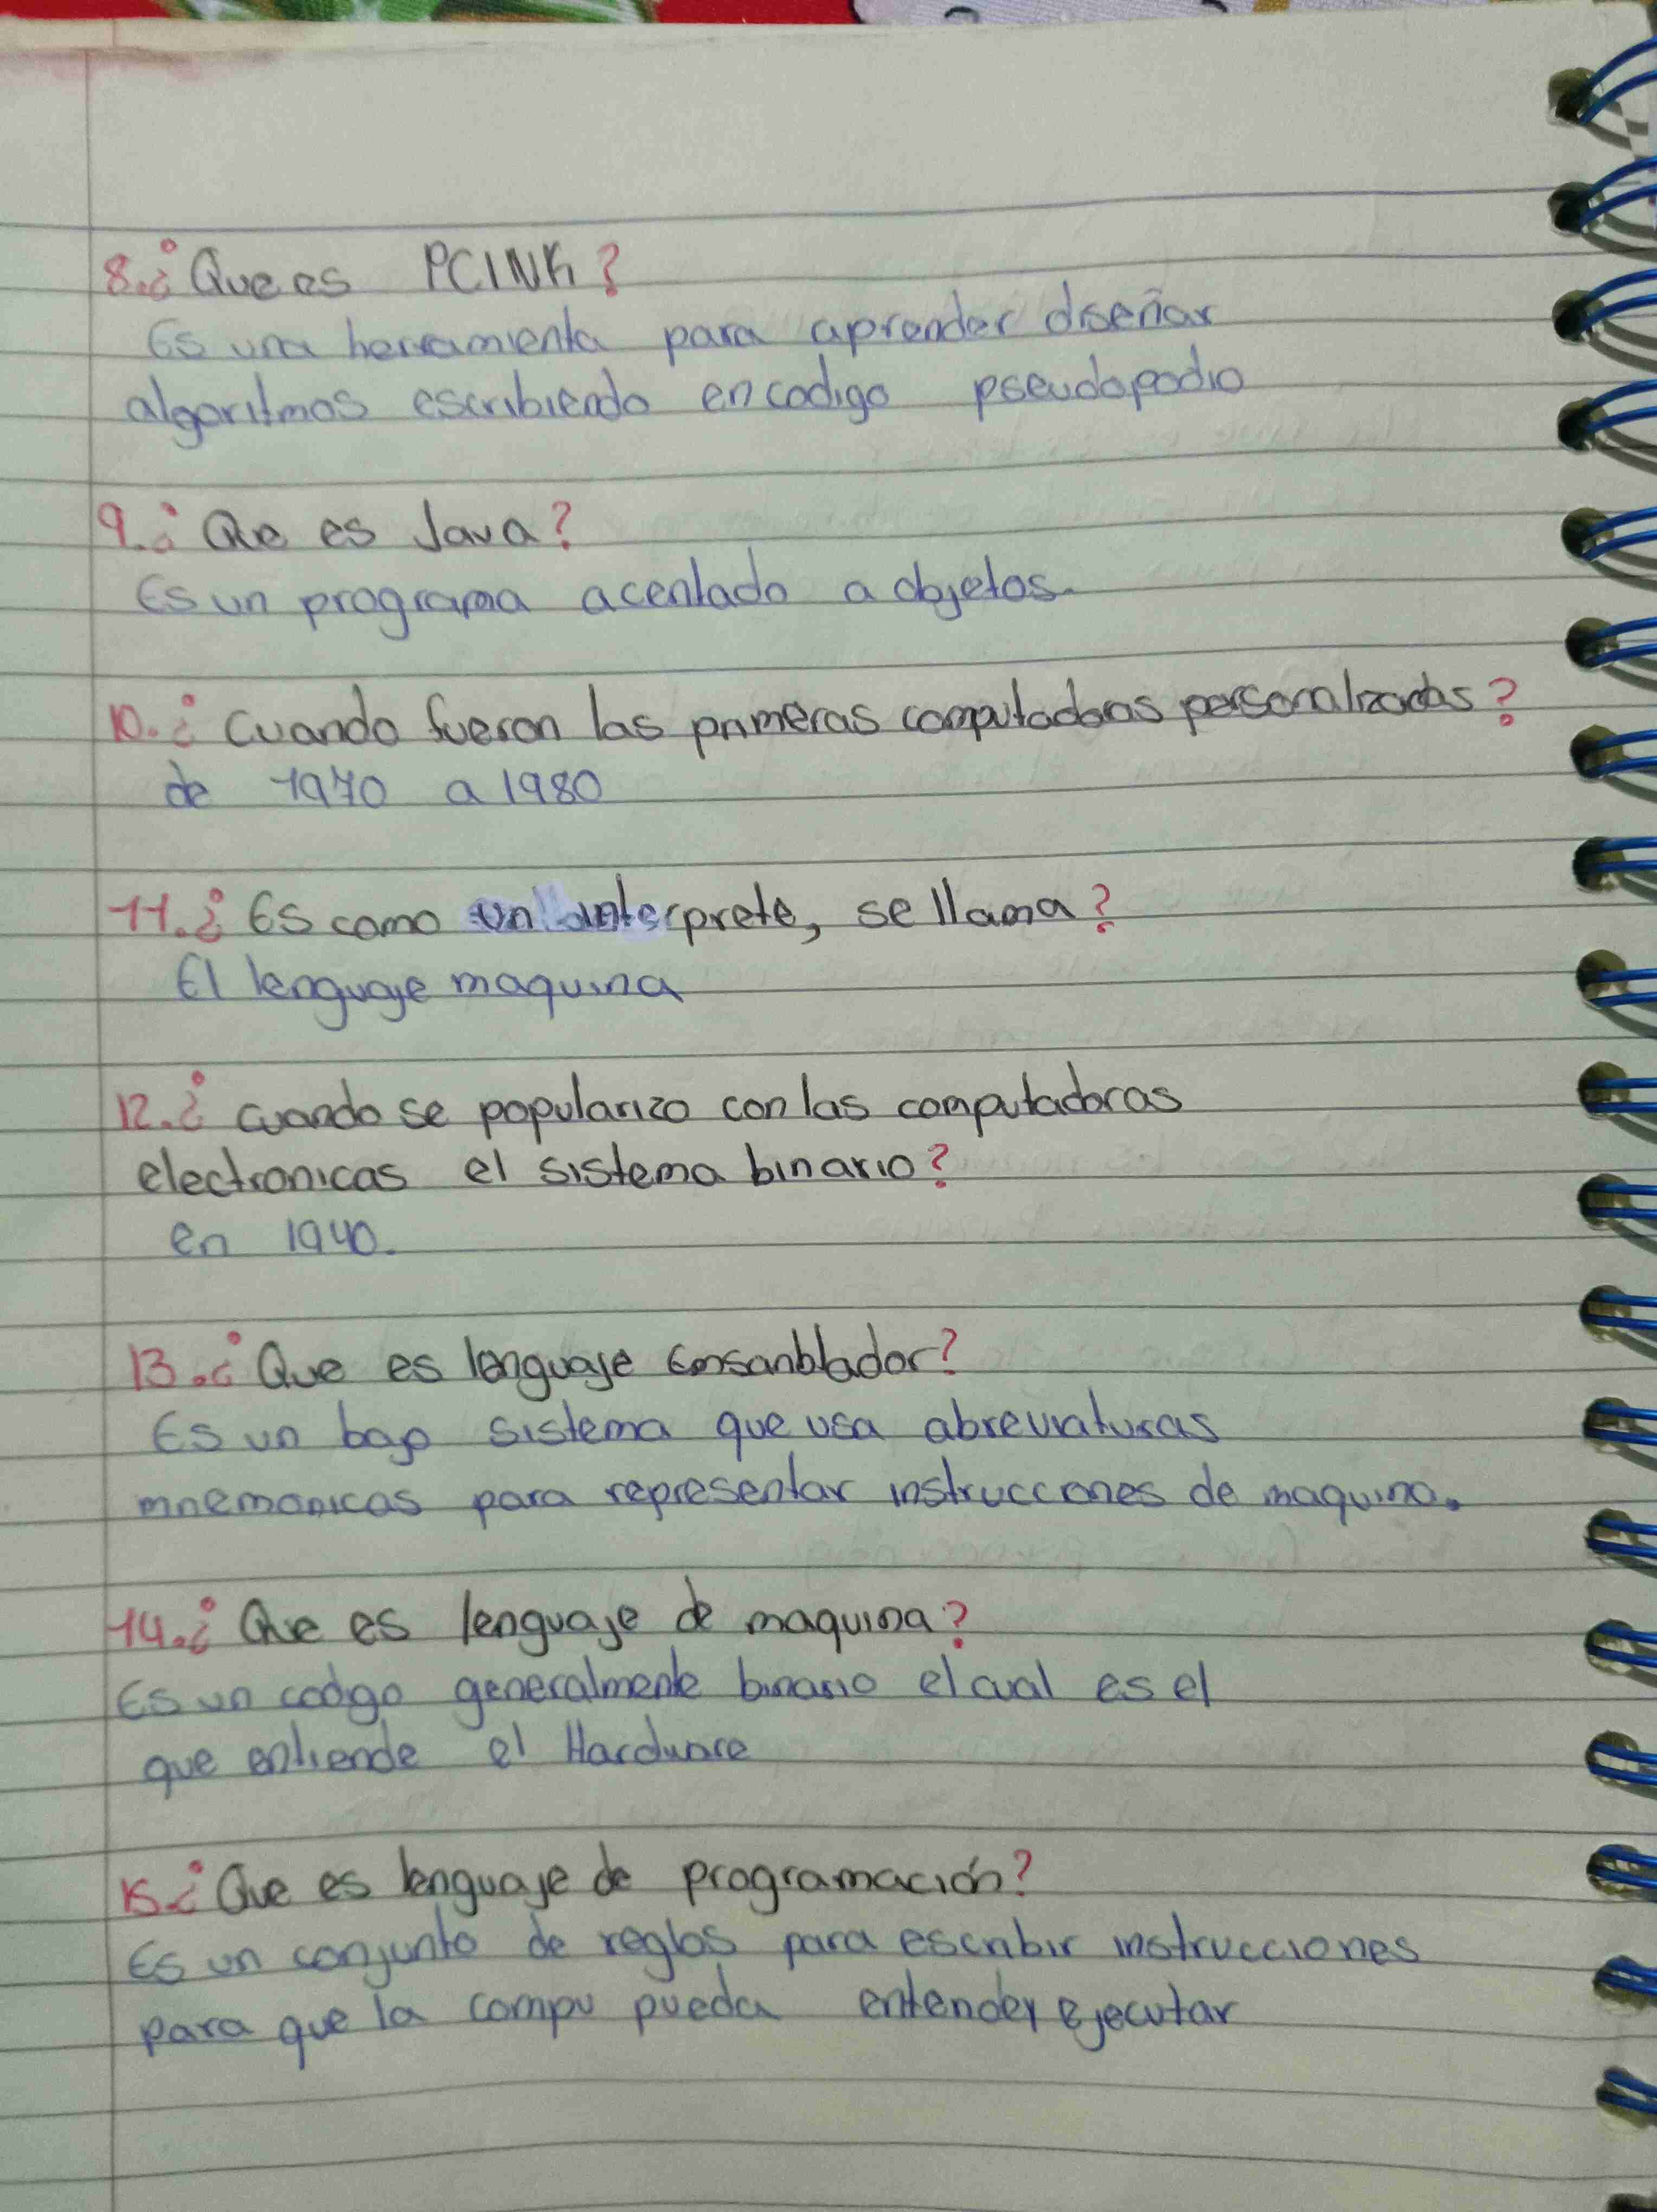 8.¿Que es PCINK?
Es una herramienta para aprender diseñar
algoritmos escribiendo en codigo pseudopodio
9.¿Que es Java?
Es un programa acentado a objetos.
10.¿Cuando fueron las primeras computadoras personalizadas?
de 1970 a 1980
11.¿Es como un interprete, se llama?
El lenguaje maquina
12.¿cuando se popularizo con las computadoras
electronicas el sistema binario?
en 1940.
13.¿Que es lenguaje ensanblador?
Es un bajo sistema que usa abreviaturas
mnemonicas para representar instrucciones de maquina.
14.¿Que es lenguaje de maquina?
Es un codigo generalmente binario el cual es el
que entiende el Hardware
15.¿Que es lenguaje de programación?
Es un conjunto de reglas para escribir instrucciones
para que la compu pueda entender y ejecutar